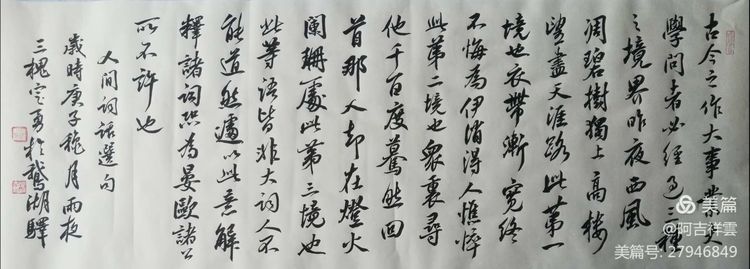 古今之作大事業大
學問者必經过三種
之境界昨夜西風
凋碧樹獨上高樓
望盡天涯路此第一
境也衣帶漸寬終
不悔為伊消得人憔悴
此第二境也衆裏尋
他千百度驀然回
首那人却在燈火
闌珊處此第三境也
此等語皆非大詞人不
能道然遽以此意解
釋諸詞恐為晏歐諸公
所不許也
人间詞話選句
歲時庚子穐月雨夜
三槐宝勇於鵞湖驛
美篇
@阿吉祥雲
美篇号: 27946849